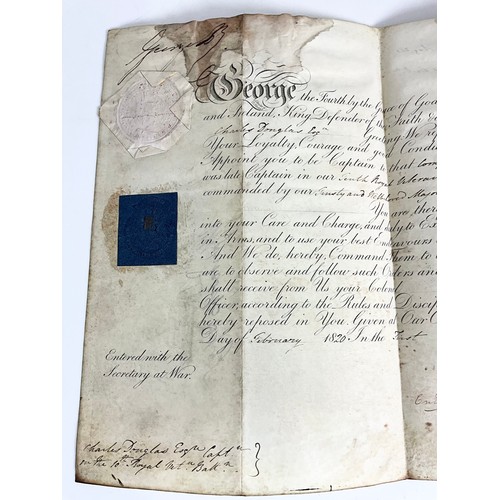 George R
George the Fourth by the Grace of God
and Ireland, King, Defender of the Faith &
Charles Douglas Esqr Greeting: We re
Your Loyalty, Courage and good Condu
Appoint you to be Captain of that Com
was late Captain in our Tenth Royal Veteran
commanded by our Trusty and Well beloved Major
You are there
into your Care and Charge, and duly to Ex
in Arms, and to use your best Endeavours
And We do, hereby, Command Them to
are to observe and follow such Orders and
shall receive from Us your Colonel
Officer, according to the Rules and Discip
hereby reposed in You. Given at Our C
Day of February 1820 In the First
Entered with the
Secretary at War.
Charles Douglas Esqre Captn
in the 10th Royal Vetn Battn